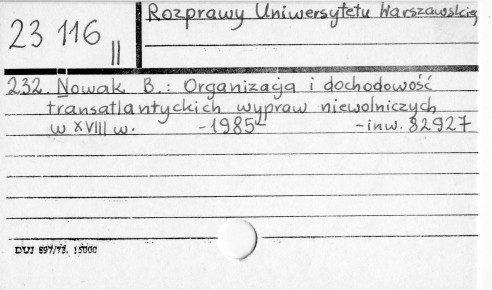 23 116 II
Rozprawy Uniwersytetu Warszawskiego
232. Nowak B.: Organizacja i dochodowość
transatlantyckich wypraw niewolniczych
w XVIII w. -1985- -inw. 82927
DUJ 897/73. 15000